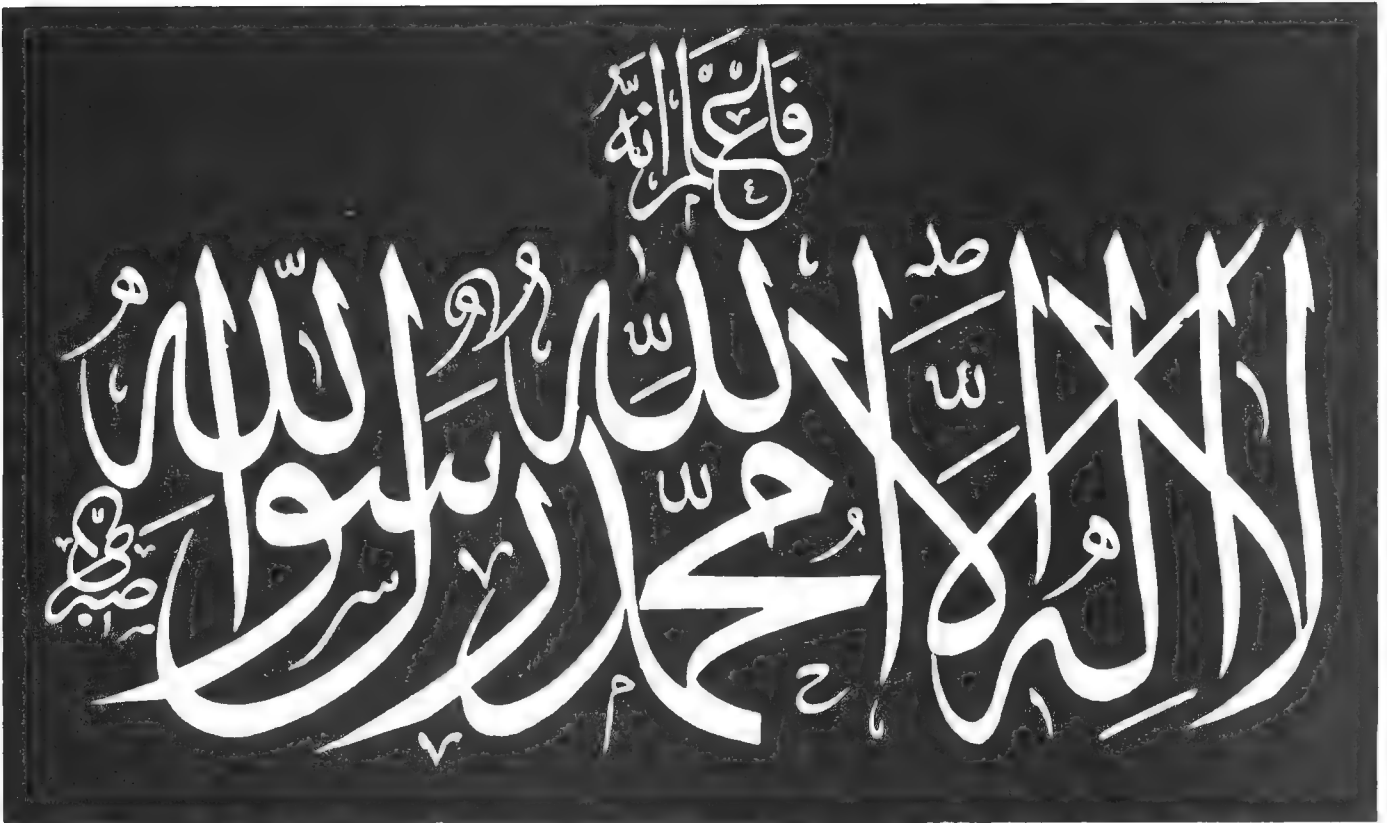 فَاعْلَمْ اَنَّهُ
لَا اِلٰهَ اِلَّا اللّٰهُ مُحَمَّدٌ رَسُولُ اللّٰهِ